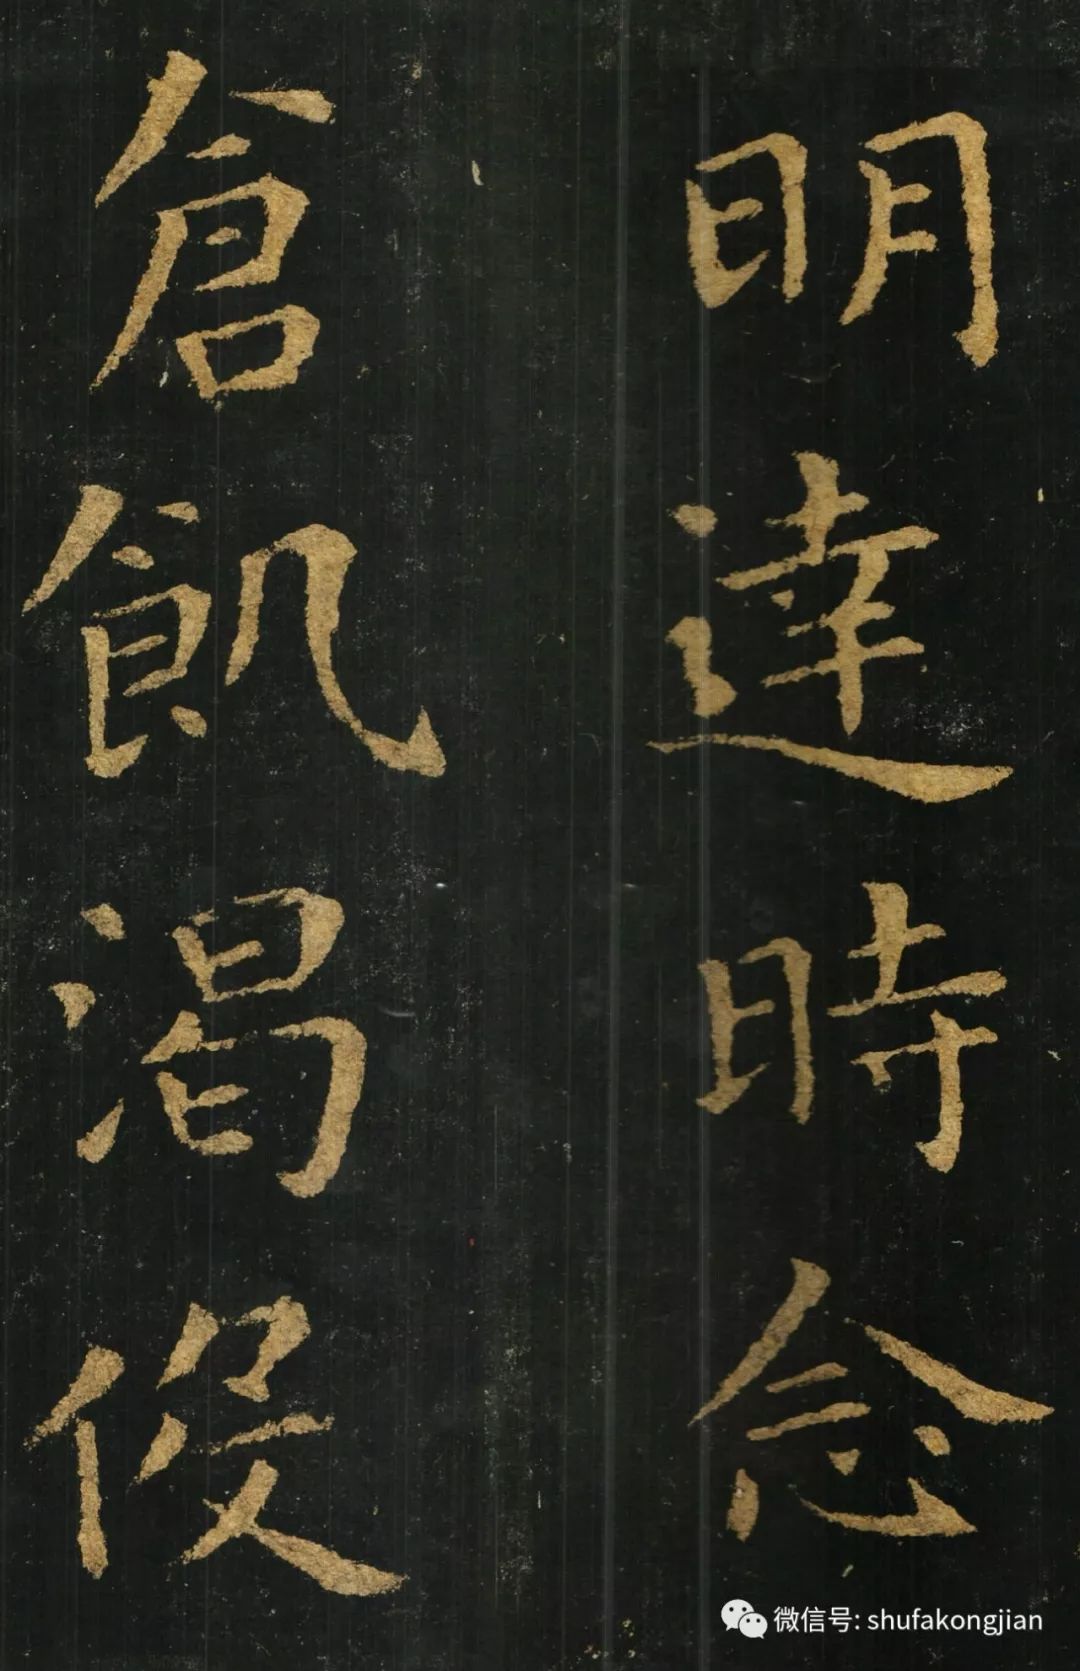 明達時念
倉飢渴俊
微信号: shufakongjian